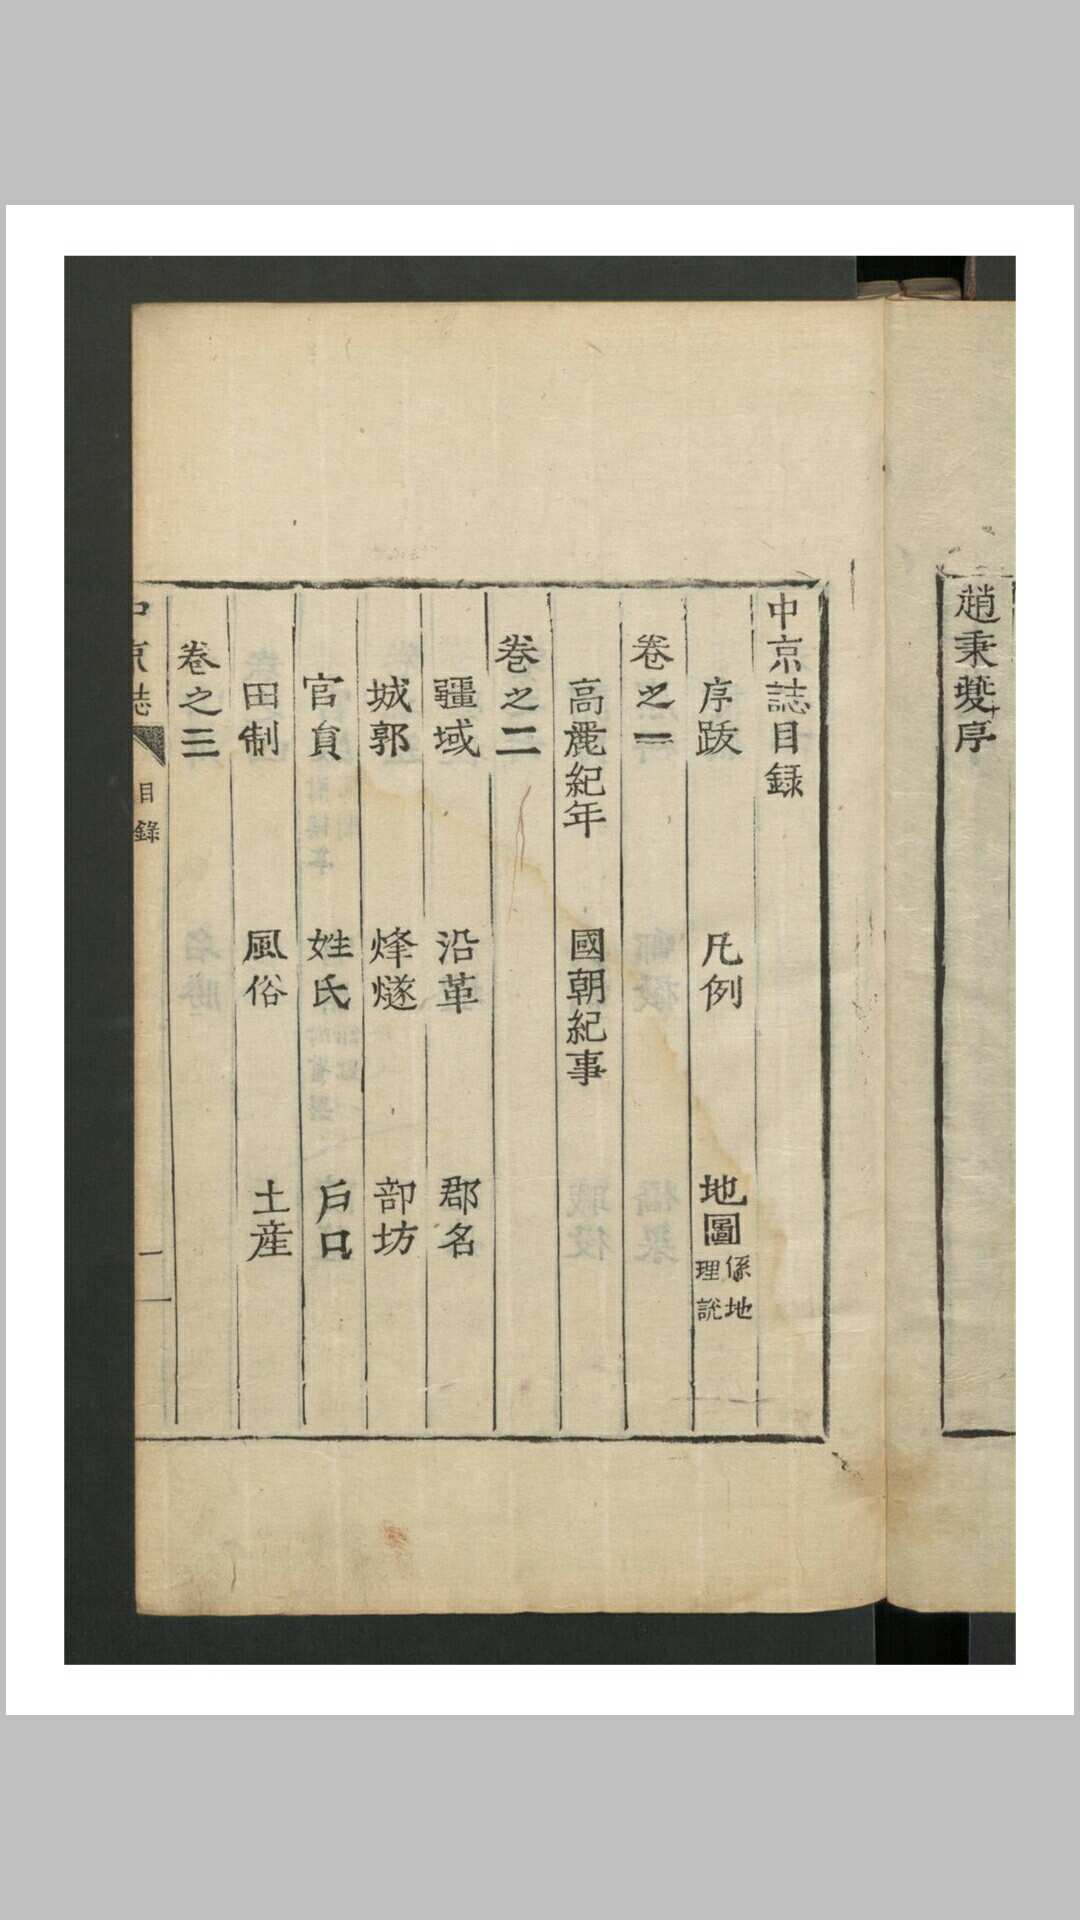 趙秉夔序
中京誌目録
序跋 凡例 地圖 係地理說
卷之一
高麗紀年 國朝紀事
卷之二
疆域 沿革 郡名
城郭 烽燧 部坊
官員 姓氏 戶口
田制 風俗 土産
卷之三
中京誌 目錄 一